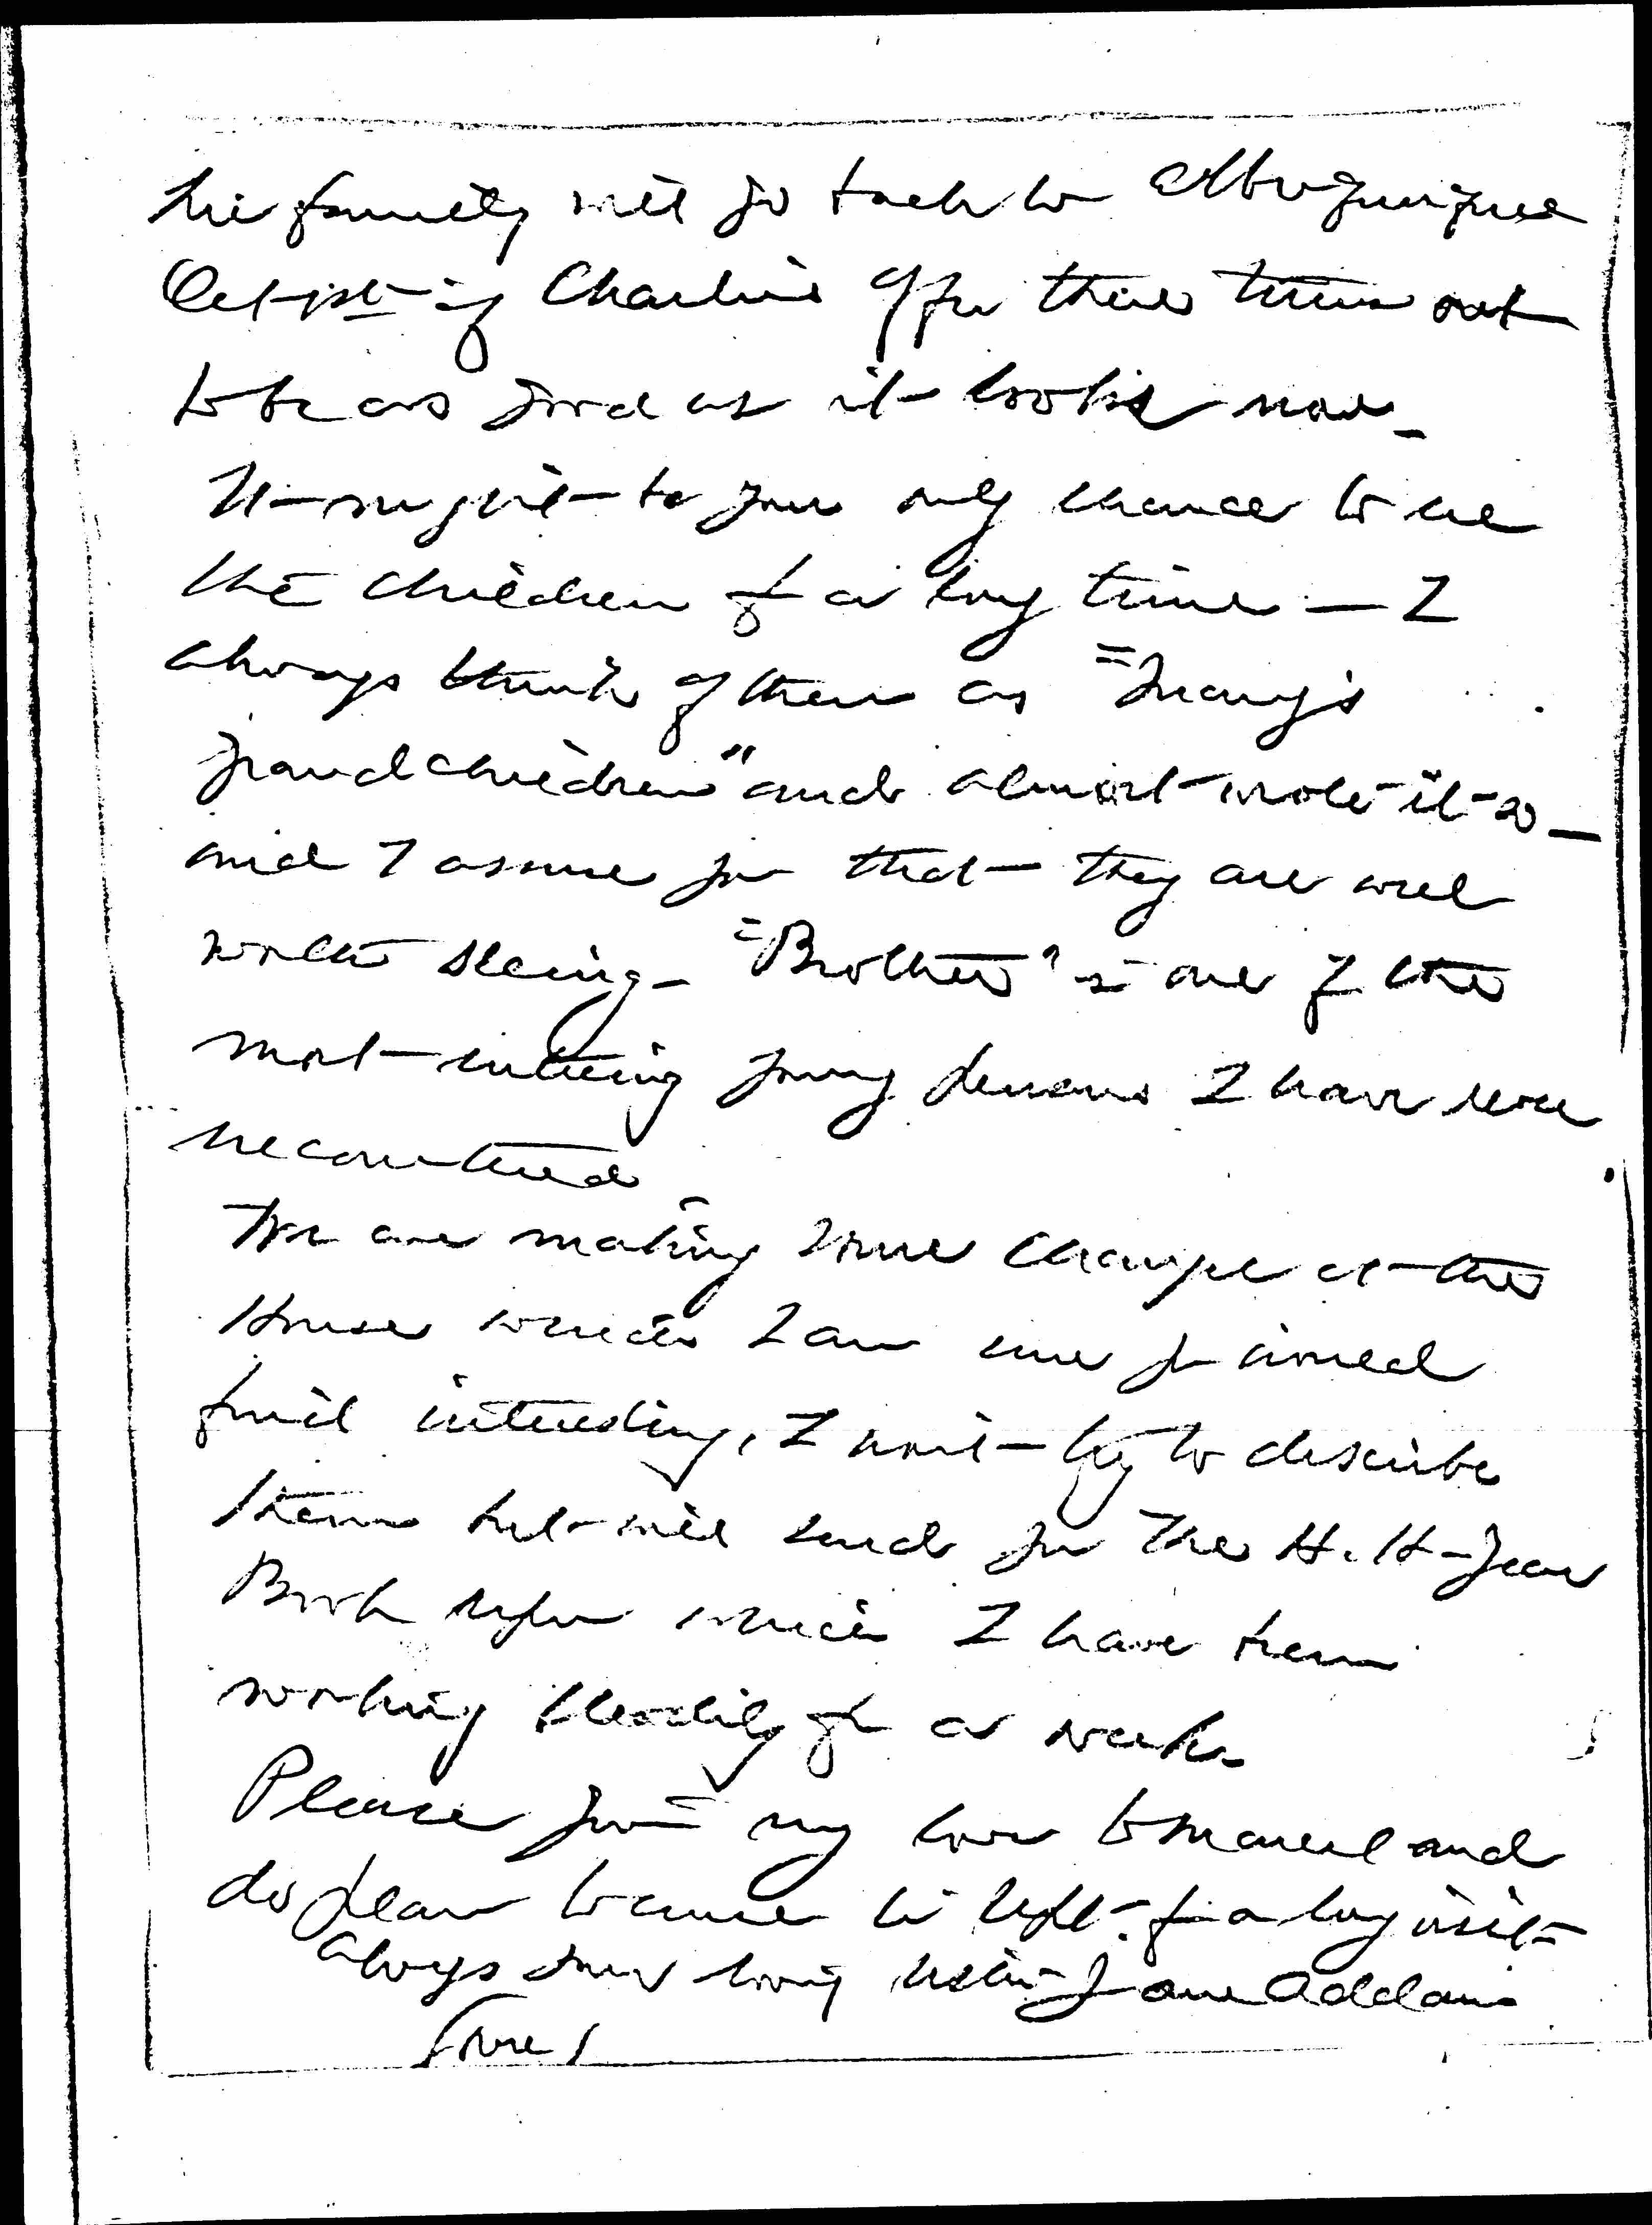 the family will go back to Albuquerque
Oct 1st if Charlie's offer there turns out
to be as good as it looks now.
It might be your only chance to see
the children for a long time — I
always think of them as "Mary's
grandchildren" and almost wrote it so —
and I assure you that they are well
worth seeing. "Brother" is one of the
most entering young persons I have ever
encountered
We are making some changes at the
House which I am sure you would
find interesting, I won't try to describe
them but will send you the H. H. Year
Book upon which I have been
working steadily for a week.
Please give my love to Marcet and
do plan to come in Sept. for a long visit
Always your loving sister Jane Addams